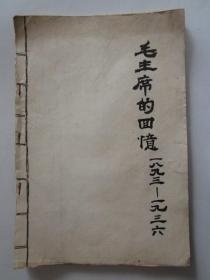 毛主席的回憶
一八九三—一九三六